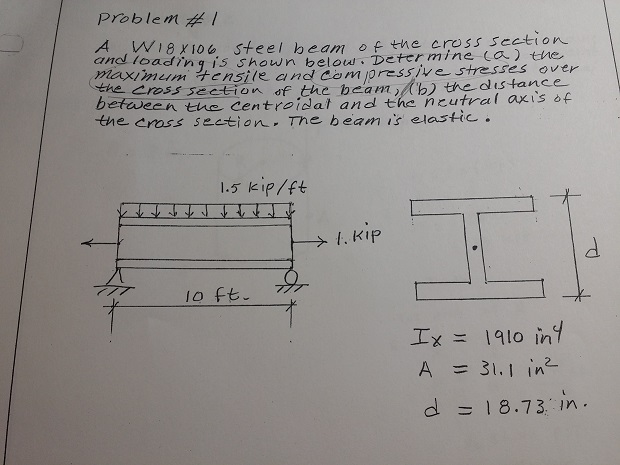 Problem # 1
A W18x106 steel beam of the cross section
and loading is shown below. Determine (a) the
maximum tensile and compressive stresses over
the cross section of the beam, (b) the distance
between the centroidal and the neutral axis of
the cross section. The beam is elastic.
1.5 kip/ft
1. kip
d
10 ft.
Ix = 1910 in4
A = 31.1 in2
d = 18.73 in.